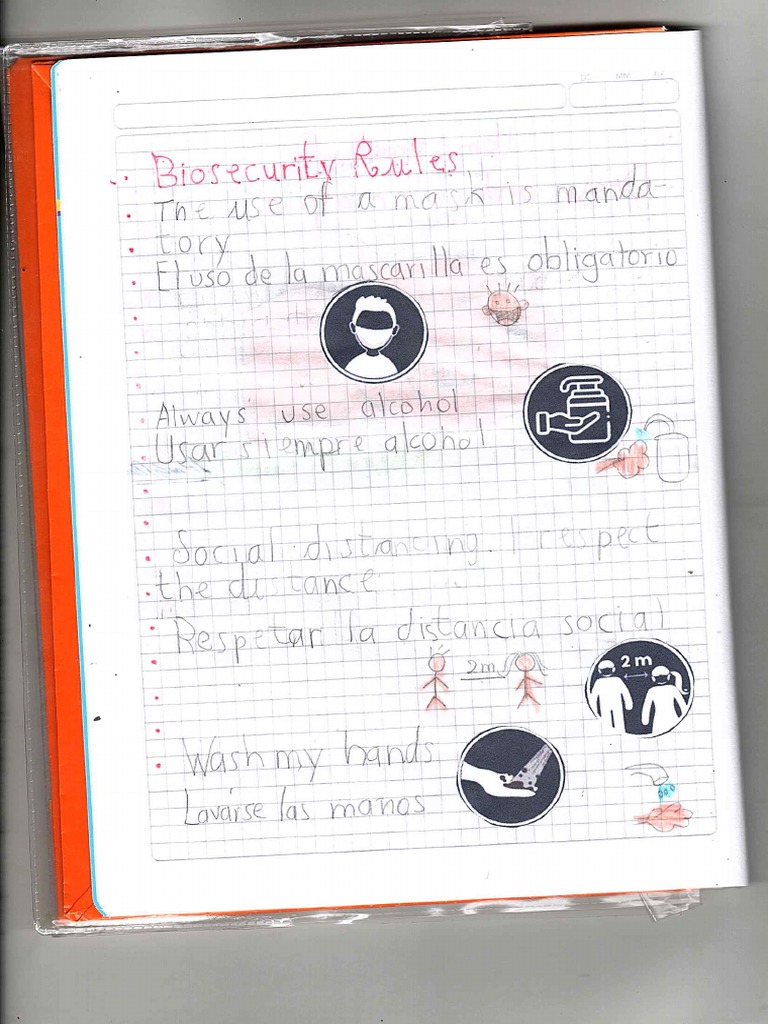 DD MM AA
Biosecurity Rules
The use of a mask is manda-
tory
El uso de la mascarilla es obligatorio
Always use alcohol
Usar siempre alcohol
Social distancing. I respect
the distance
Respetar la distancia social
2m
2 m
Wash my hands
Lavarse las manos